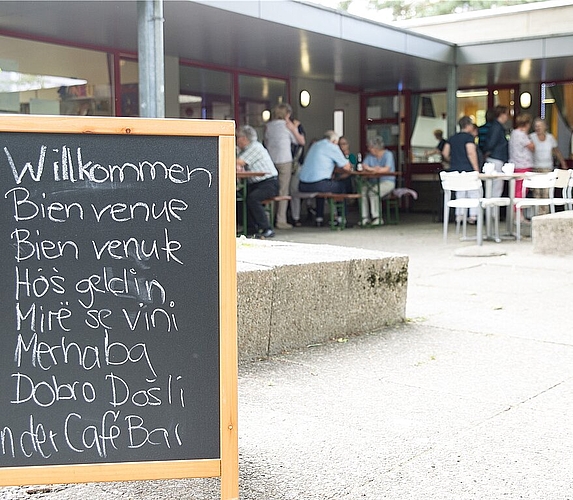 Willkommen
Bienvenue
Bien venuti
Hôs geldin
Mirë se vini
Merhaba
Dobro Došli
in der Café Bar